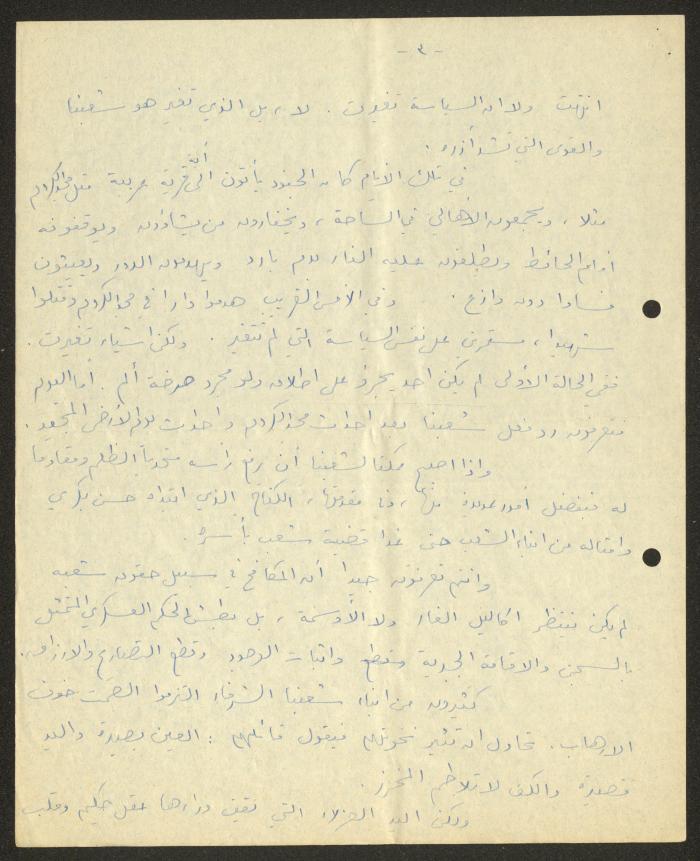 - ٣ -
انتهت ولا ان السياسة تغيرت . لا ، بل الذي تغير هو شعبنا
والقوى التي تشد أزره .
في تلك الأيام كان الجنود يأتون الى أية قرية عربية مثل مجد الكروم
مثلا ، ويجمعون الأهالي في الساحة ، ويختارون من يشاؤون ويوقفونه
أمام الحائط ويطلقون عليه النار بدم بارد ويهدمون الدور ويعيثون
فسادا دون وازع . وفي الأمس القريب هدموا دارا في مجد الكروم وقتلوا
شهيدا ، مستمرين على نفس السياسة التي لم تتغير . ولكن أشياء تغيرت .
ففي الحالة الأولى لم يكن احد يجرؤ على اطلاق ولو مجرد صرخة ألم . أما اليوم
فتعرفون رد فعل شعبنا بعد احداث مجد الكروم واحداث يوم الأرض المجيد .
واذا اصبح ممكنا لشعبنا أن يرفع رأسه متحديا الظلم ومقاوما
له فبفضل أمور عديدة منها ، وفي مقدمتها ، الكفاح الذي ابتدأه حسن بكري
وامثاله من ابناء الشعب حتى غدا قضية شعب بأسره .
وانتم تعرفون جيدا أن المكافح في سبيل حقوق شعبه
لم يكن ينتظر اكاليل الغار ولا الأوسمة ، بل بطش الحكم العسكري المتمثل
بالسجن والاقامة الجبرية واثبات الوجود وقطع التصاريح والارزاق .
كثيرون من ابناء شعبنا الشرفاء التزموا الصمت خوف
الارهاب . تحاول ان تثير نخوتهم فيقول قائلهم : العين بصيرة واليد
قصيرة والكف لا تلاطم المخرز .
ولكن اليد العزلاء التي تقف وراءها عقل حكيم وقلب